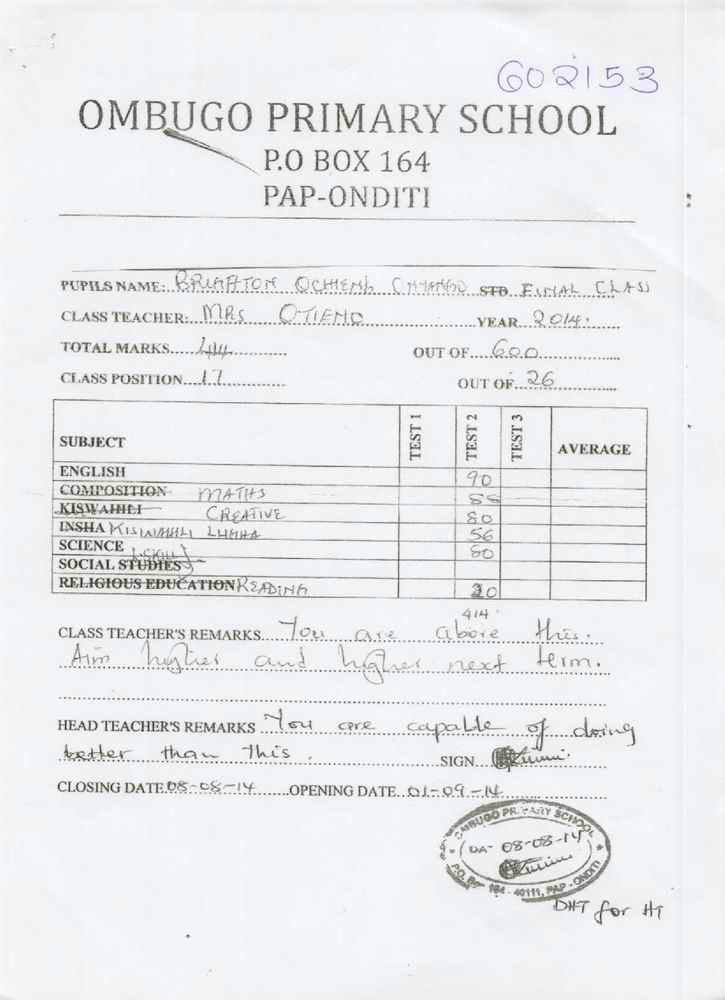 602153
OMBUGO PRIMARY SCHOOL
P.O BOX 164
PAP-ONDITI
PUPILS NAME: BRIGHTON OCHIENG ONYANGO STD FINAL CLASS
CLASS TEACHER: MRS OTIENO YEAR 2014
TOTAL MARKS OUT OF 600
CLASS POSITION 17 OUT OF 26
SUBJECT TEST 1 TEST 2 TEST 3 AVERAGE
ENGLISH 90
COMPOSITION MATHS 88
KISWAHILI CREATIVE 80
INSHA KISWAHILI LUGHA 56
SCIENCE 80
SOCIAL STUDIES
RELIGIOUS EDUCATION READING 20
414
CLASS TEACHER'S REMARKS You are above this.
Aim higher and higher next term.
HEAD TEACHER'S REMARKS You are capable of doing
better than this. SIGN
CLOSING DATE 08-08-14 OPENING DATE 01-09-14
OMBUGO PRIMARY SCHOOL
08-08-14
P.O. BOX 164 - 40111, PAP-ONDITI
DHT for HT